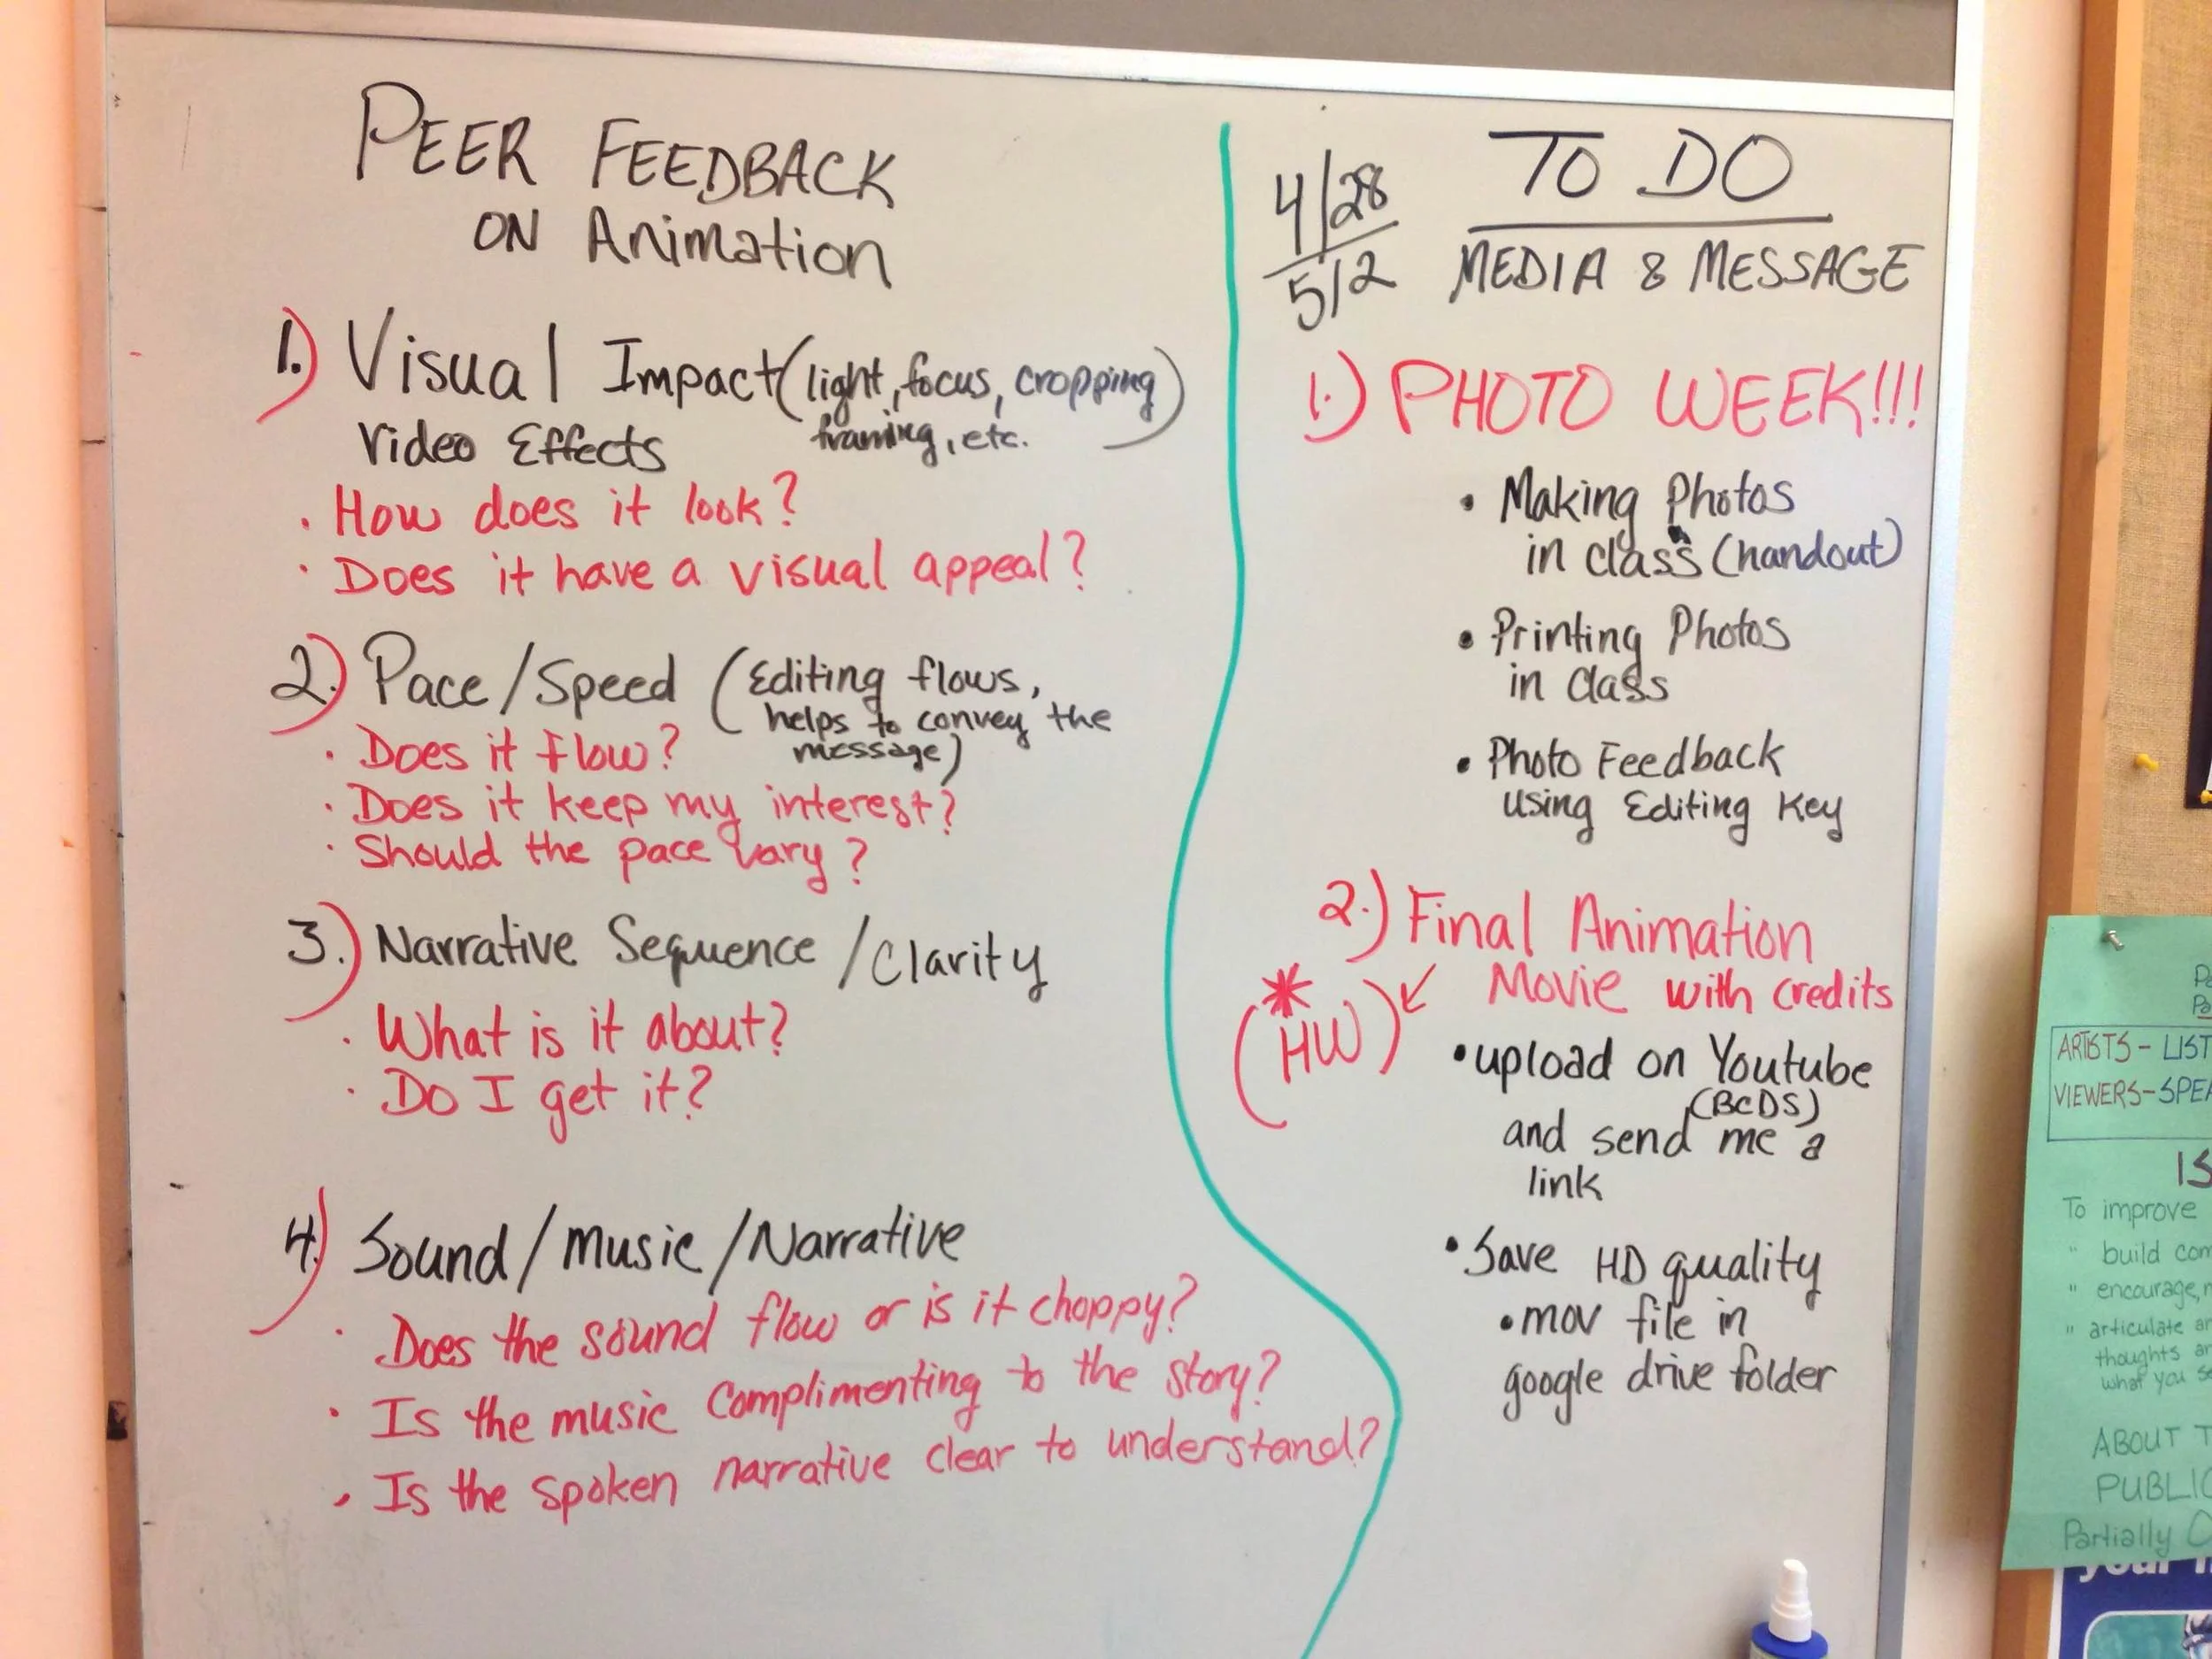 PEER FEEDBACK
ON Animation
1.) Visual Impact (light, focus, cropping)
framing, etc.
Video Effects
· How does it look?
· Does it have a visual appeal?
2.) Pace/Speed (Editing flows,
helps to convey the
message)
· Does it flow?
· Does it keep my interest?
· Should the pace vary?
3.) Narrative Sequence/Clarity
· What is it about?
· Do I get it?
4.) Sound/Music/Narrative
· Does the sound flow or is it choppy?
· Is the music complimenting to the story?
· Is the spoken narrative clear to understand?
4/28
5/2
TO DO
MEDIA & MESSAGE
1.) PHOTO WEEK!!!
• Making Photos
in class (handout)
• Printing Photos
in class
• Photo Feedback
using Editing Key
2.) Final Animation
Movie with credits
(* HW)
• upload on Youtube
(BCDS)
and send me a
link
• Save HD quality
• mov file in
google drive folder
ARTISTS - LIST
VIEWERS - SPEA
IS
To improve
" build com
" encourage,
" articulate
thoughts
what you
ABOUT T
PUBLIC
Partially
your